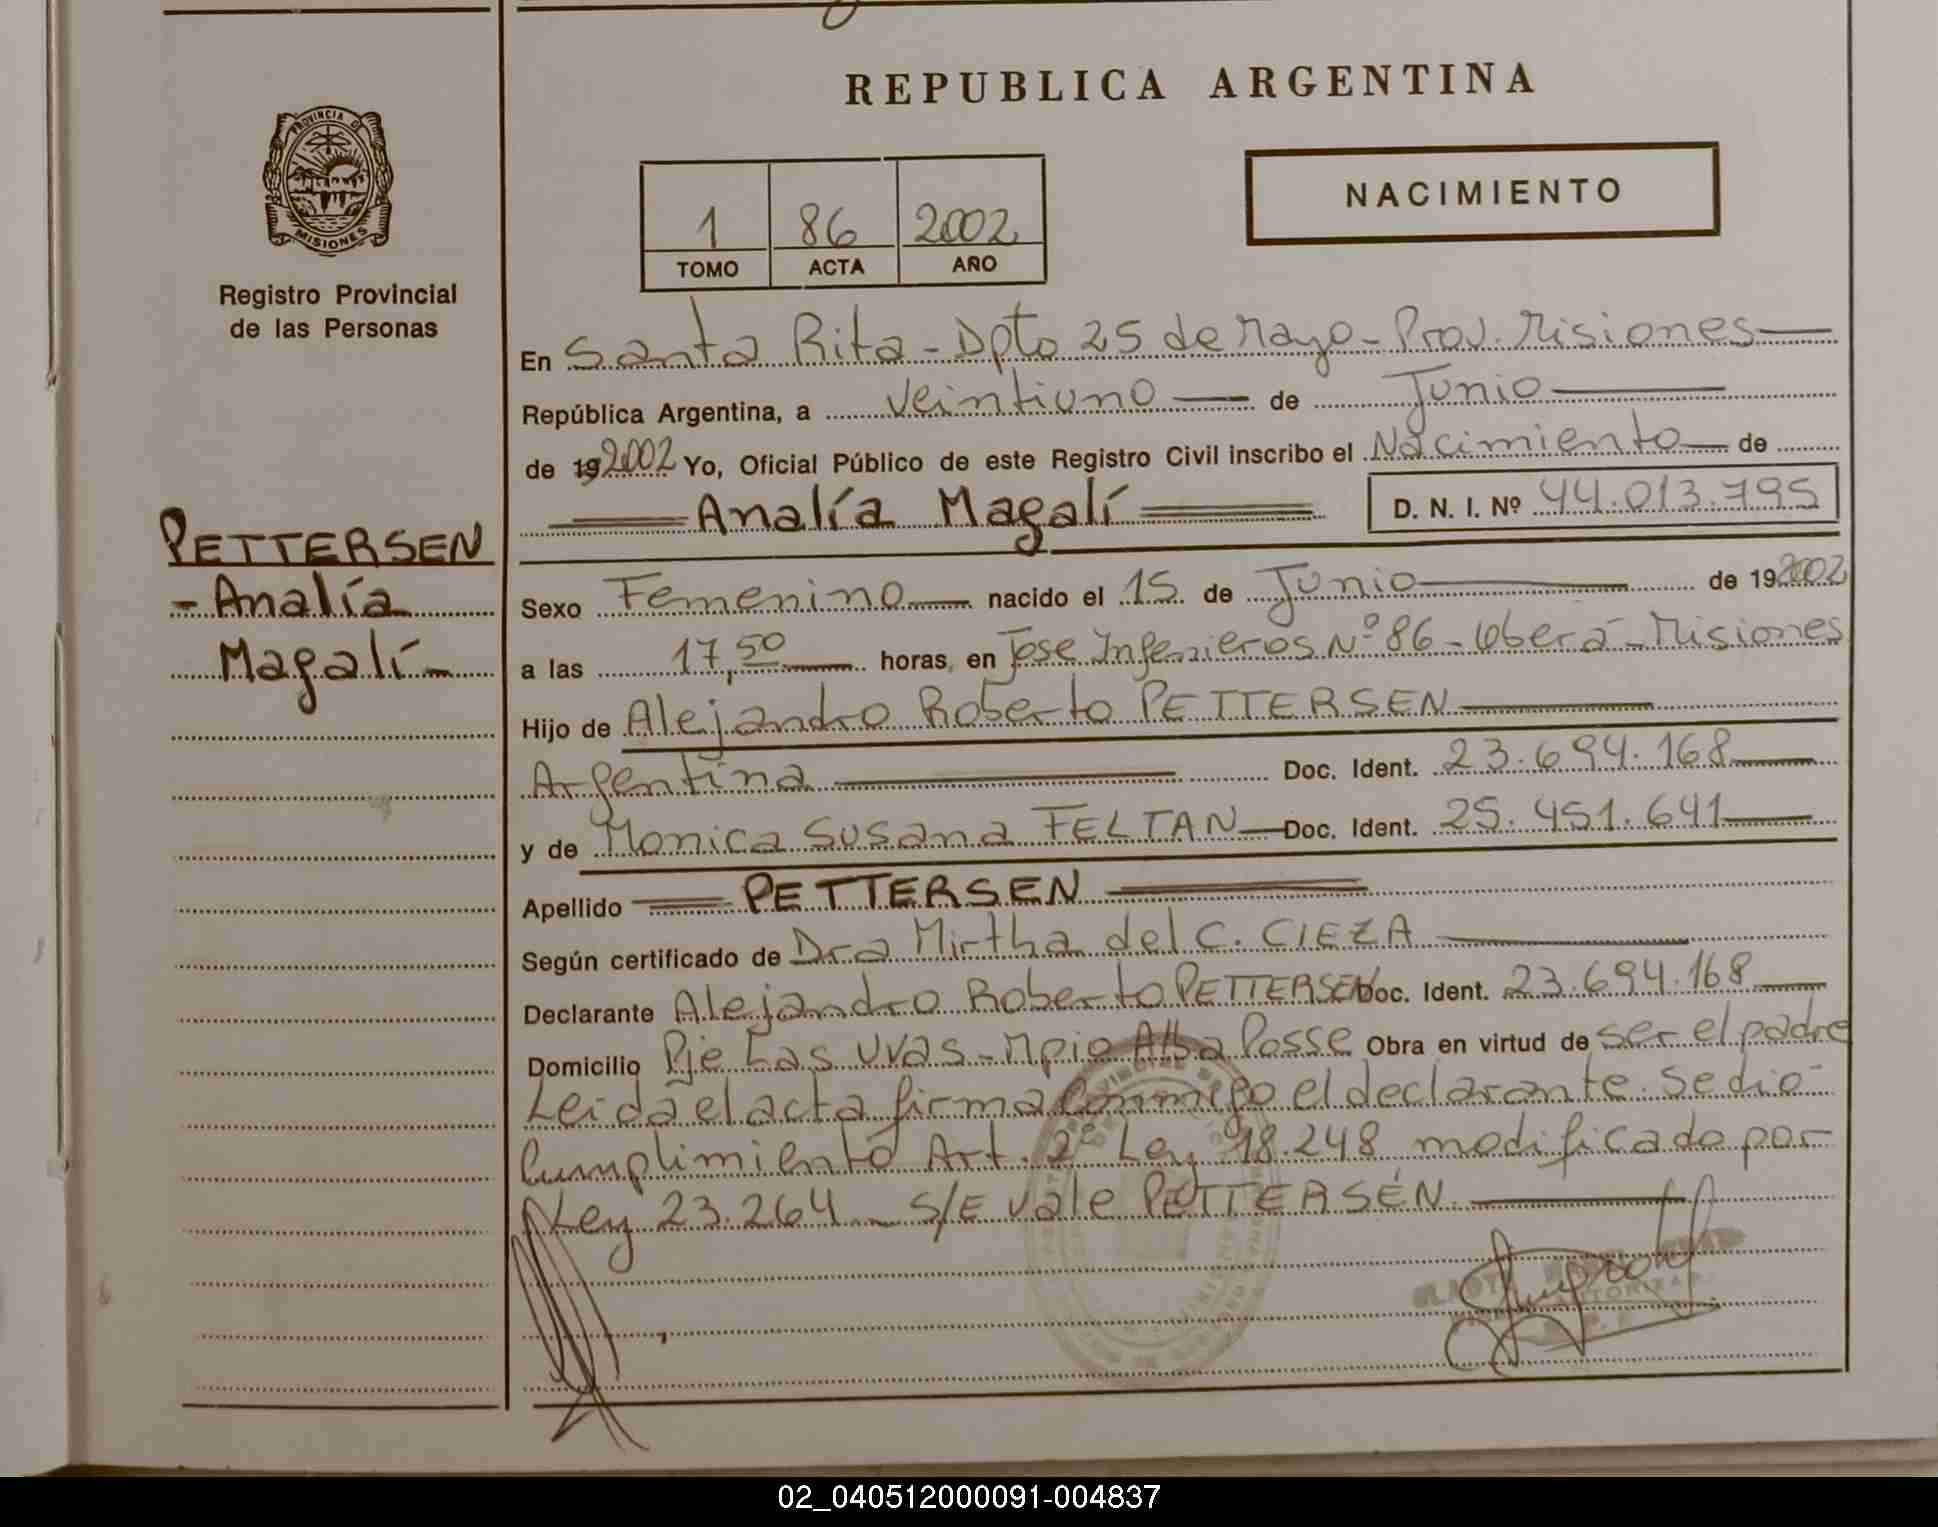 REPUBLICA ARGENTINA
PROVINCIA DE
MISIONES
Registro Provincial
de las Personas
NACIMIENTO
1 86 2002
TOMO ACTA AÑO
En Santa Rita - Dpto 25 de Mayo - Prov. Misiones
República Argentina, a veintiuno de Junio
de 192002 Yo, Oficial Público de este Registro Civil inscribo el Nacimiento de
Analía Magalí D. N. I. Nº 44.013.795
PETTERSEN
- Analía
Magalí -
Sexo Femenino nacido el 15 de Junio de 192002
a las 17,50 horas, en Jose Ingenieros Nº 86 - Oberá - Misiones
Hijo de Alejandro Roberto PETTERSEN
Argentina Doc. Ident. 23.694.168
y de Monica Susana FELTAN Doc. Ident. 25.451.641
Apellido PETTERSEN
Según certificado de Dra Mirtha del C. CIEZA
Declarante Alejandro Roberto PETTERSEN Doc. Ident. 23.694.168
Domicilio Pje Las Uvas - Mpio Alba Posse Obra en virtud de ser el padre
Leida el acta firma conmigo el declarante. Se dio
Cumplimiento Art. 2º Ley 18.248 modificado por
Ley 23.264 - S/E vale PETTERSEN.
02_040512000091-004837